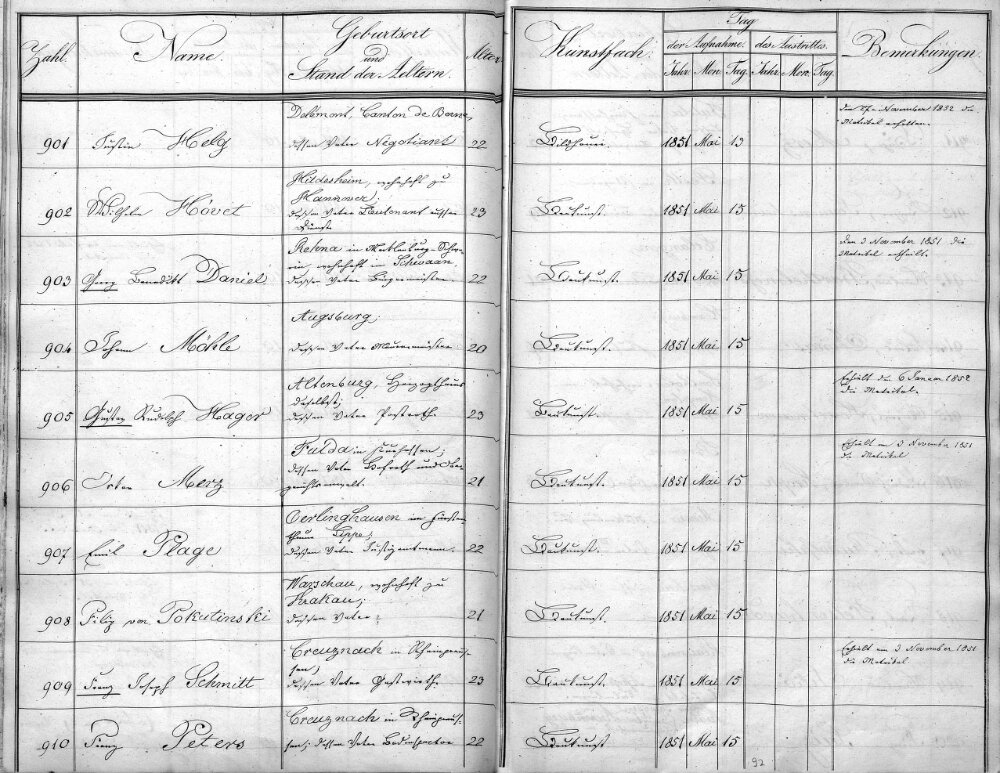 Zahl. Name. Geburtsort und Stand der Aeltern. Alter Kunstfach. Tag der Aufnahme. des Austrittes. Bemerkungen.
Jahr. Mon. Tag. Jahr. Mon. Tag.
Delémont, Canton de Berne,
901 Justin Helg dessen Vater Negotiant 22 Bildhauerei. 1851 Mai 13
November 1852 die Matrikel erhalten.
Hildesheim, wohnhaft zu
Hannover;
902 Wilhelm Hövet dessen Vater Lieutenant außer 23 Baukunst. 1851 Mai 15
Dienste
Retena in Meklenburg-Schwe-
rin, wohnhaft in Schwaan
903 Georg Benedikt Daniel dessen Vater Bürgermeister 22 Baukunst. 1851 Mai 15
Den 3 November 1851 die
Matrikel ertheilt.
Augsburg;
904 Johann Möhle dessen Vater Maurermeister 20 Baukunst. 1851 Mai 15
Altenburg, Herzogthum
daselbst;
905 Gustav Rudolph Hager dessen Vater 23 Baukunst. 1851 Mai 15
Erhält den 6 Januar 1852
die Matrikel.
Fulda in Kurhessen;
dessen Vater Hofrath und Ober-
906 Merz gerichtsanwalt. 21 Baukunst. 1851 Mai 15
Erhält am 3 November 1851
die Matrikel
Oerlinghausen im Fürsten-
thum Lippe;
907 Emil Plage dessen Vater Justizamtmann. 22 Baukunst. 1851 Mai 15
Warschau, wohnhaft zu
Krakau;
908 Filip von Pokutinski dessen Vater 21 Baukunst. 1851 Mai 15
Creuznach in Rheinpreus-
sen;
909 Franz Joseph Schmitt dessen Vater Gastwirth. 23 Baukunst. 1851 Mai 15
Erhält am 3 November 1851
die Matrikel
Creuznach in Rheinpreus-
910 Franz Peters sen; dessen Vater Bauinspector 22 Baukunst 1851 Mai 15
92